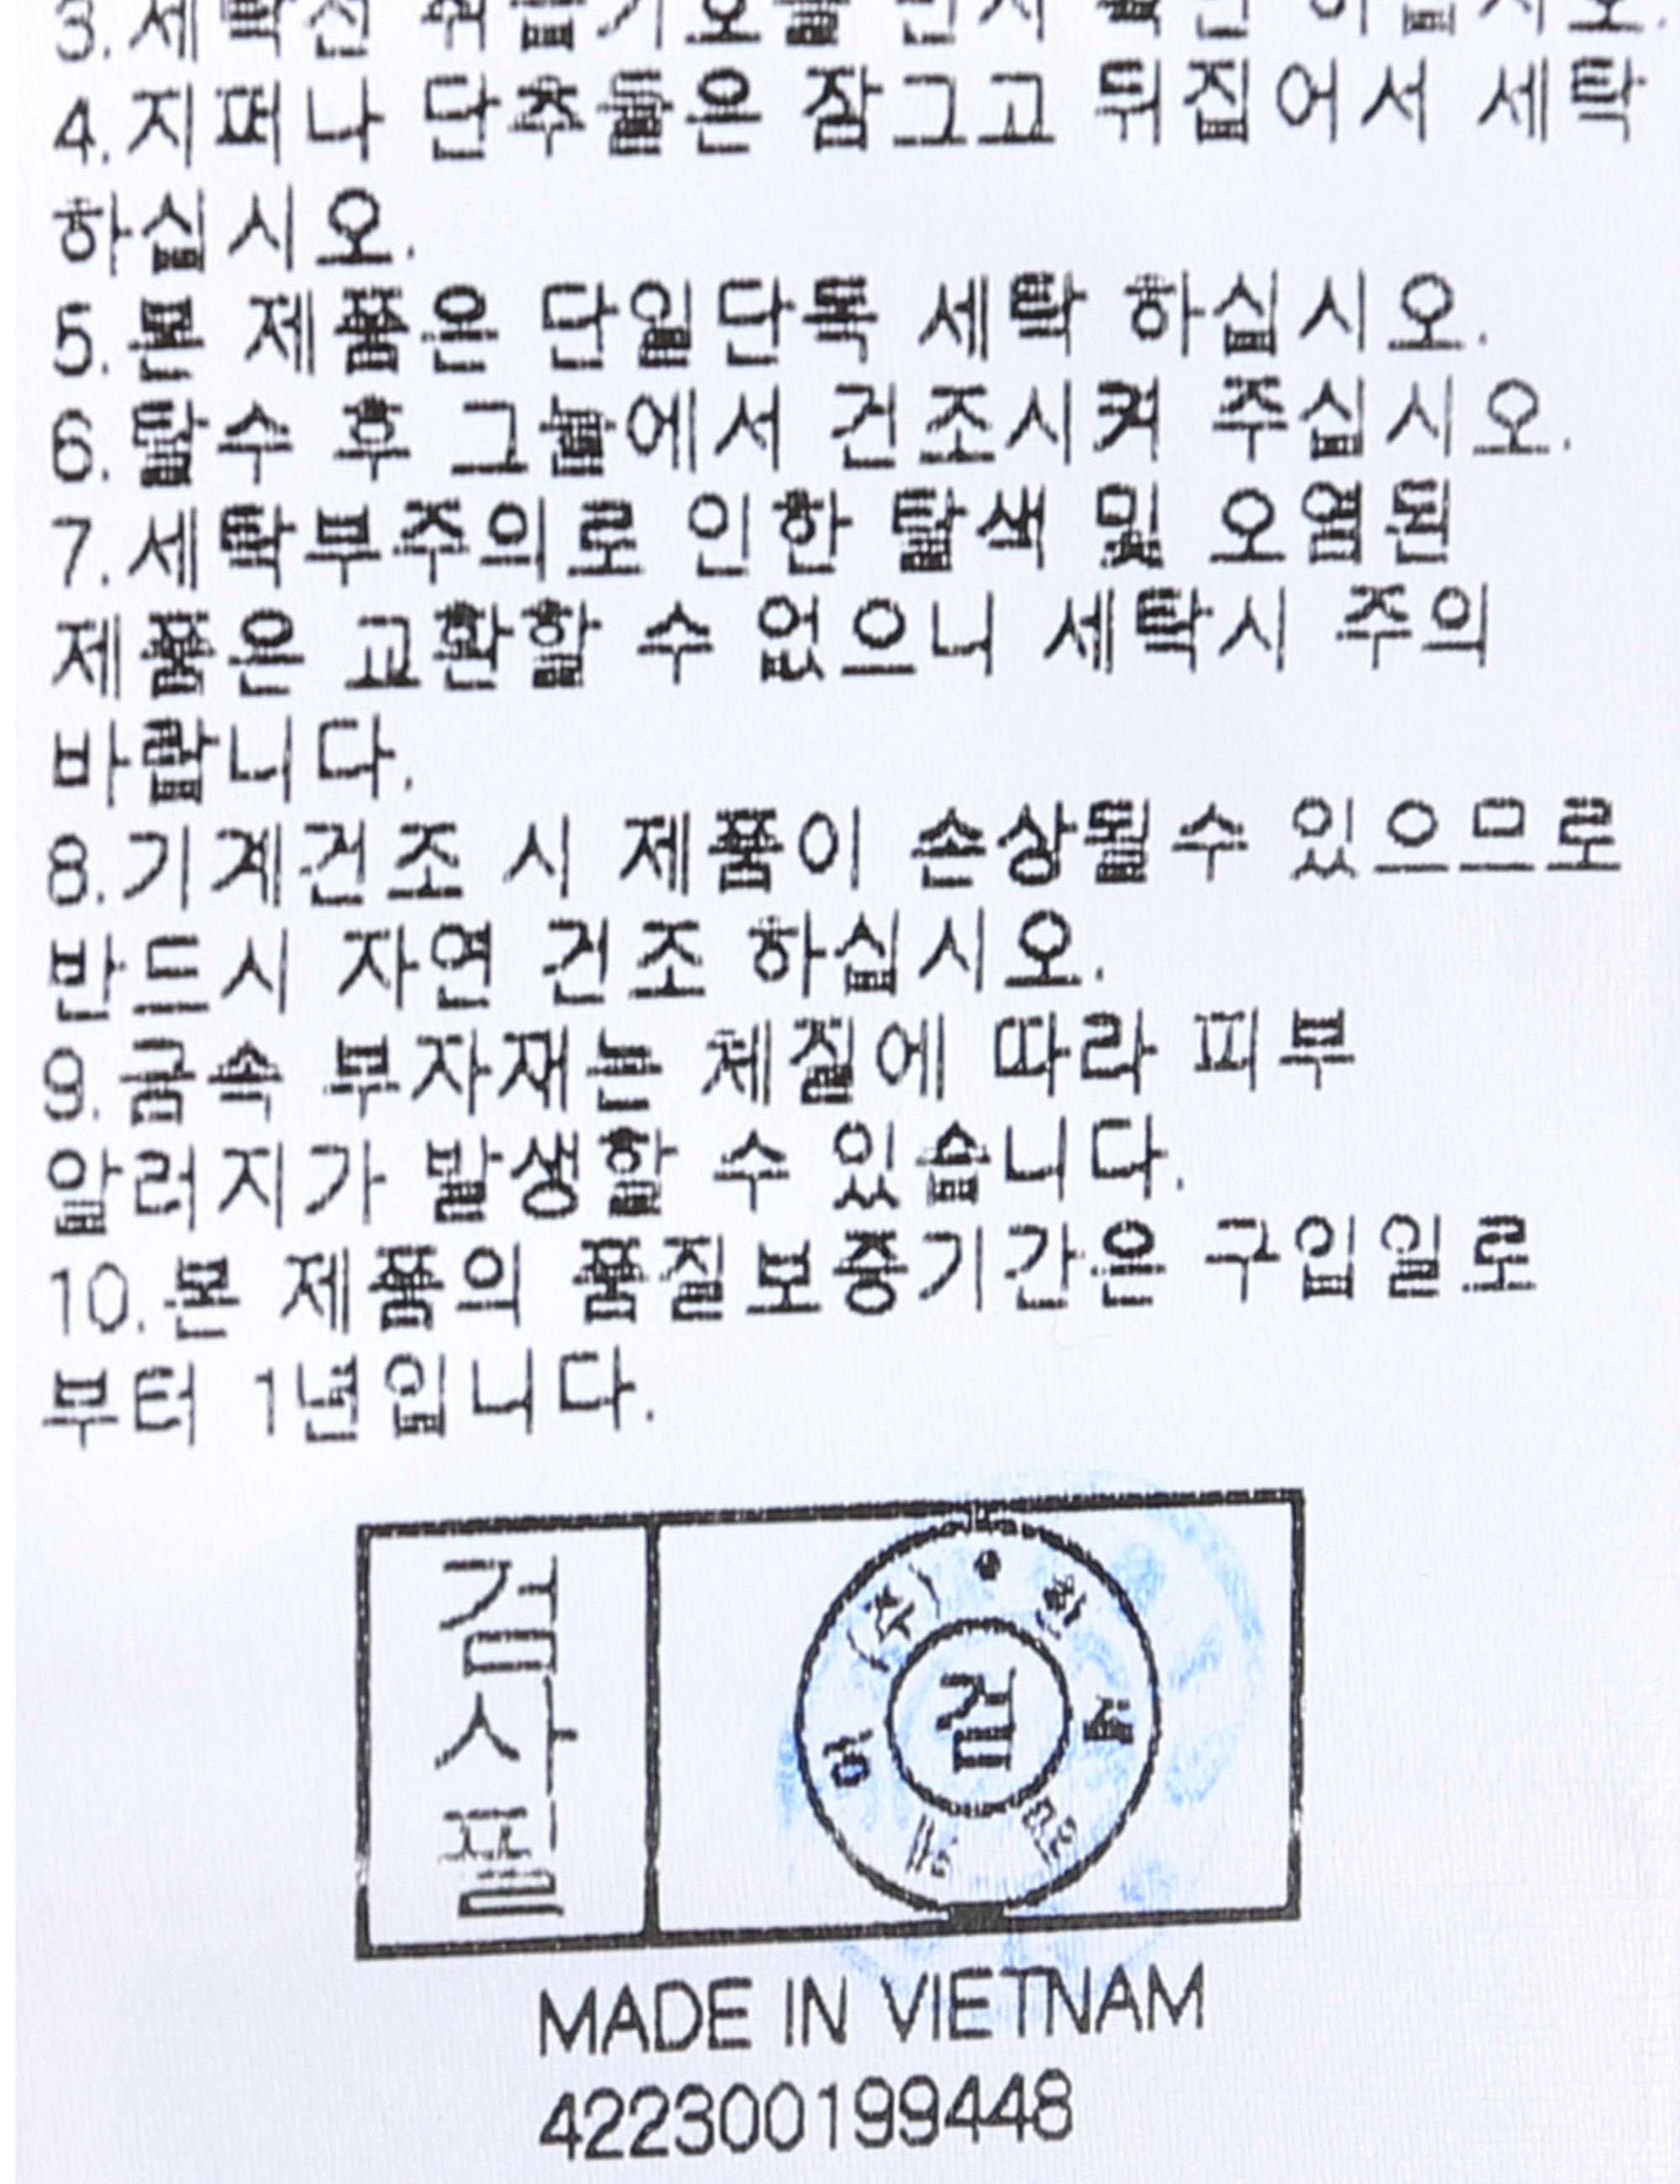 3.세탁전 취급기호를 먼저 확인 하십시오.
4.지퍼나 단추들은 잠그고 뒤집어서 세탁
하십시오.
5.본 제품은 단일단독 세탁 하십시오.
6.탈수 후 그늘에서 건조시켜 주십시오.
7.세탁부주의로 인한 탈색 및 오염된
제품은 교환할 수 없으니 세탁시 주의
바랍니다.
8.기계건조 시 제품이 손상될수 있으므로
반드시 자연 건조 하십시오.
9.금속 부자재는 체질에 따라 피부
알러지가 발생할 수 있습니다.
10.본 제품의 품질보증기간은 구입일로
부터 1년입니다.
검사필
검
MADE IN VIETNAM
422300199448